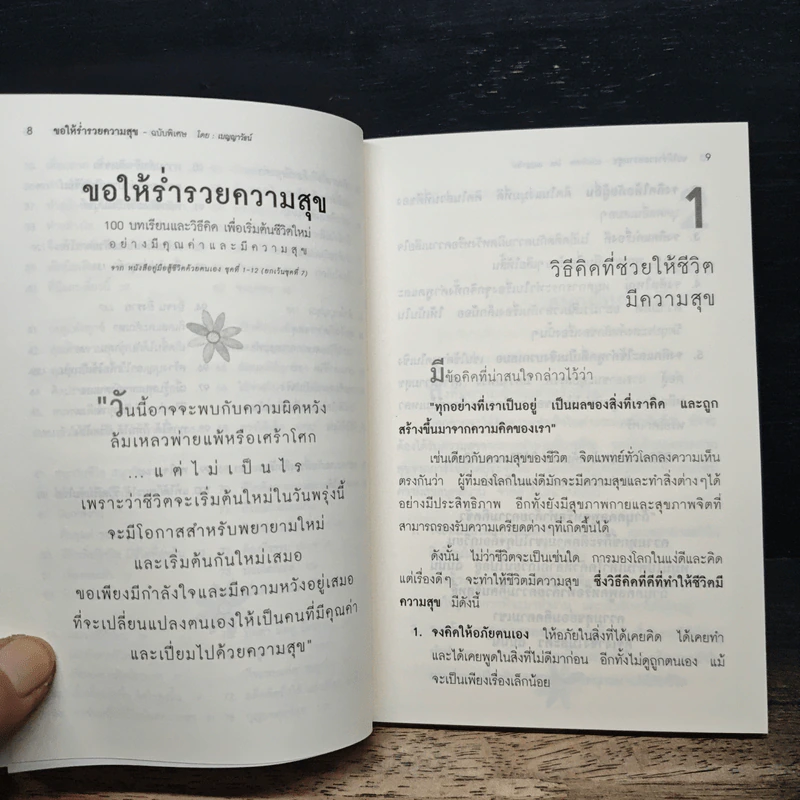 8 ขอให้ร่ำรวยความสุข - ฉบับพิเศษ โดย : เบญญาวัธน์
ขอให้ร่ำรวยความสุข
100 บทเรียนและวิธีคิด เพื่อเริ่มต้นชีวิตใหม่
อย่างมีคุณค่าและมีความสุข
จาก หนังสือคู่มือสู้ชีวิตด้วยตนเอง ชุดที่ 1-12 (ยกเว้นชุดที่ 7)
"วันนี้อาจจะพบกับความผิดหวัง
ล้มเหลวพ่ายแพ้หรือเศร้าโศก
... แต่ไม่เป็นไร
เพราะว่าชีวิตจะเริ่มต้นใหม่ในวันพรุ่งนี้
จะมีโอกาสสำหรับพยายามใหม่
และเริ่มต้นกันใหม่เสมอ
ขอเพียงมีกำลังใจและมีความหวังอยู่เสมอ
ที่จะเปลี่ยนแปลงตนเองให้เป็นคนที่มีคุณค่า
และเปี่ยมไปด้วยความสุข"
9
1
วิธีคิดที่ช่วยให้ชีวิต
มีความสุข
มีข้อคิดที่น่าสนใจกล่าวไว้ว่า
"ทุกอย่างที่เราเป็นอยู่ เป็นผลของสิ่งที่เราคิด และถูก
สร้างขึ้นมาจากความคิดของเรา"
เช่นเดียวกับความสุขของชีวิต จิตแพทย์ทั่วโลกลงความเห็น
ตรงกันว่า ผู้ที่มองโลกในแง่ดีมักจะมีความสุขและทำสิ่งต่างๆได้
อย่างมีประสิทธิภาพ อีกทั้งยังมีสุขภาพกายและสุขภาพจิตที่
สามารถรองรับความเครียดต่างๆที่เกิดขึ้นได้
ดังนั้น ไม่ว่าชีวิตจะเป็นเช่นใด การมองโลกในแง่ดีและคิด
แต่เรื่องดีๆ จะทำให้ชีวิตมีความสุข ซึ่งวิธีคิดที่ดีที่ทำให้ชีวิตมี
ความสุข มีดังนี้
1. จงคิดให้อภัยตนเอง ให้อภัยในสิ่งที่ได้เคยคิด ได้เคยทำ
และได้เคยพูดในสิ่งที่ไม่ดีมาก่อน อีกทั้งไม่ดูถูกตนเอง แม้
จะเป็นเพียงเรื่องเล็กน้อย